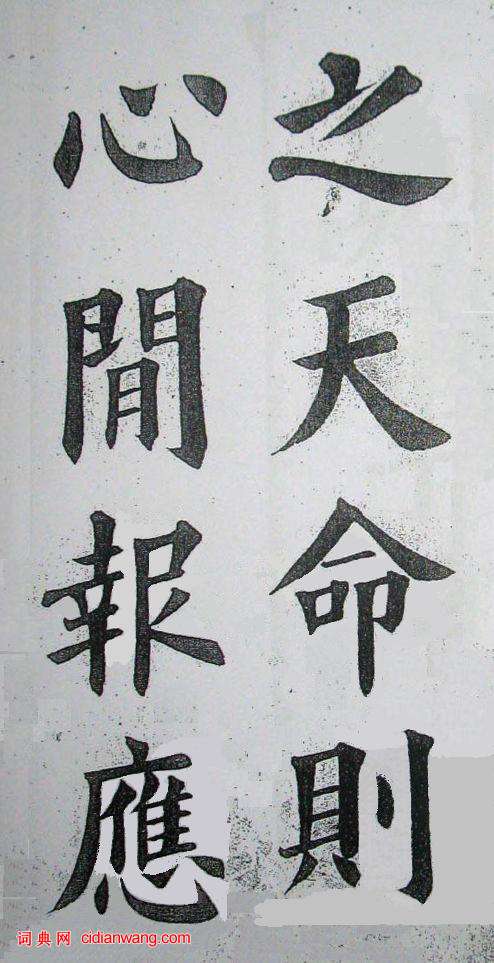 之天命則
心閒報應
词典网 cidianwang.com